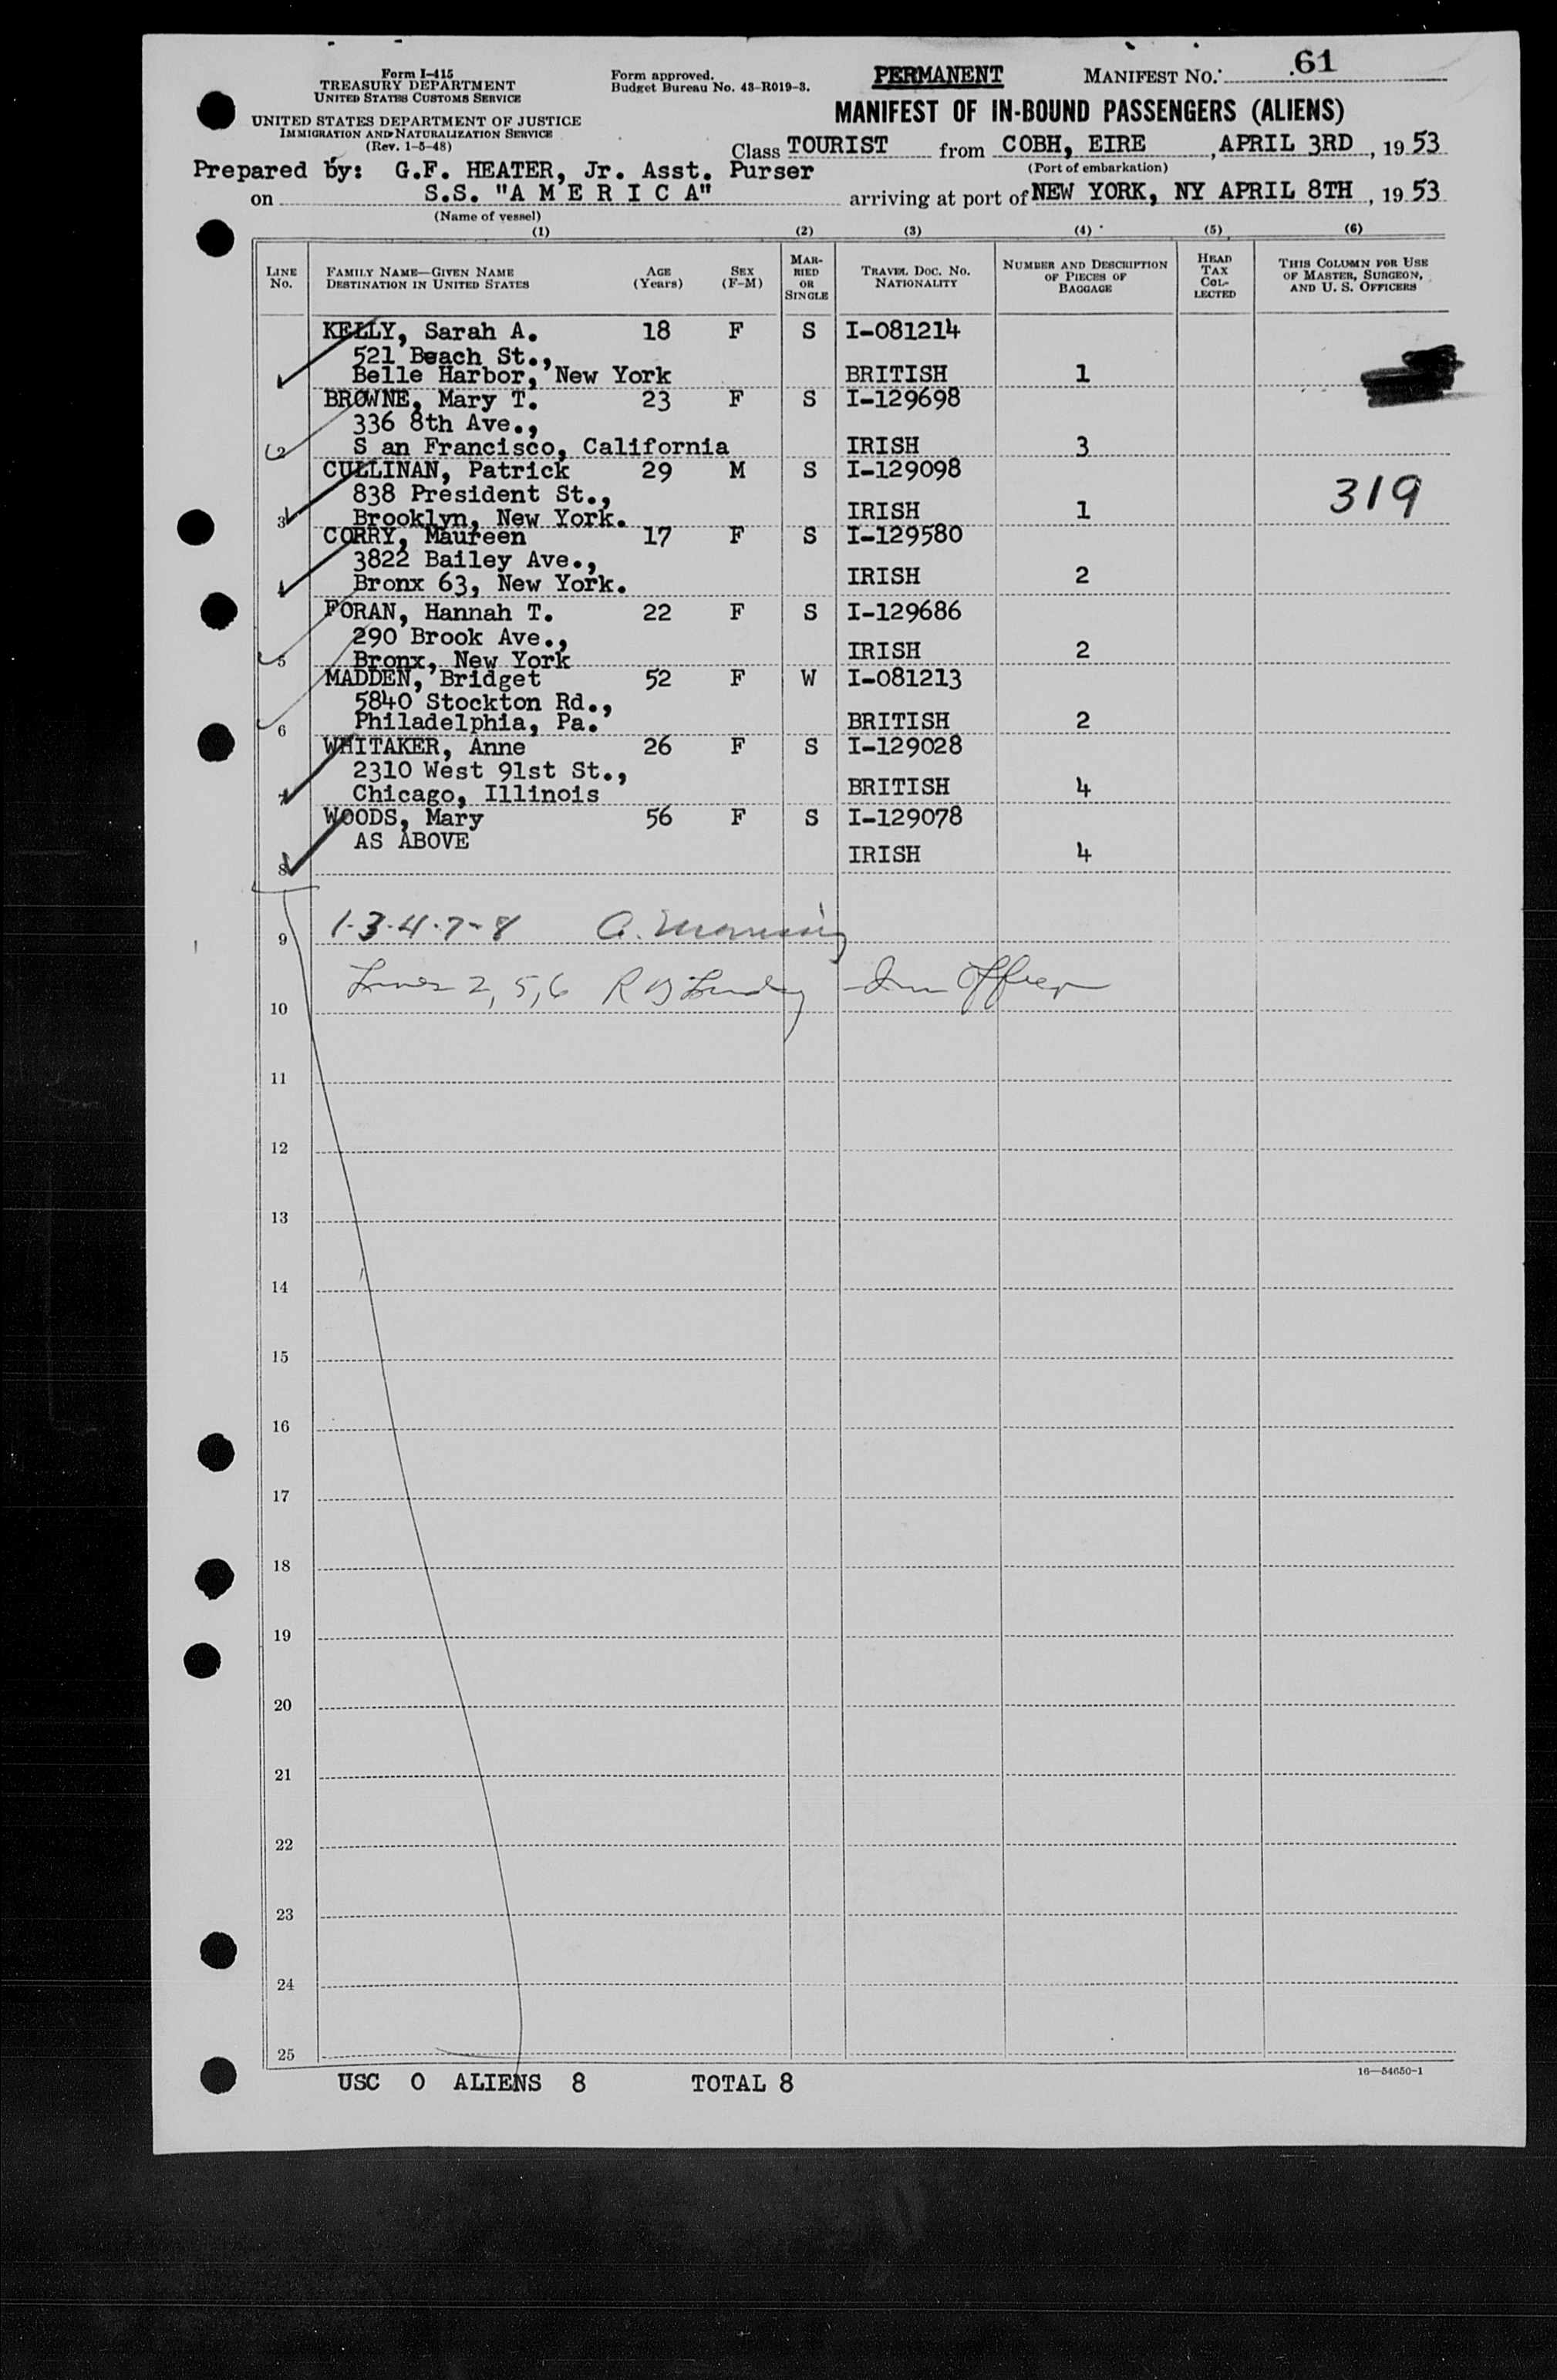 Form I-415
TREASURY DEPARTMENT
UNITED STATES CUSTOMS SERVICE
UNITED STATES DEPARTMENT OF JUSTICE
IMMIGRATION AND NATURALIZATION SERVICE
(Rev. 1-5-48)
Form approved.
Budget Bureau No. 43-R019-3.
PERMANENT
MANIFEST NO. 61
MANIFEST OF IN-BOUND PASSENGERS (ALIENS)
Class TOURIST from COBH, EIRE, APRIL 3RD, 1953
(Port of embarkation)
Prepared by: G.F. HEATER, Jr. Asst. Purser
on S.S. "A M E R I C A" arriving at port of NEW YORK, NY APRIL 8TH, 1953
(Name of vessel)
(1) (2) (3) (4) (5) (6)
LINE NO. FAMILY NAME—GIVEN NAME DESTINATION IN UNITED STATES AGE (Years) SEX (F-M) MARRIED OR SINGLE TRAVEL DOC. NO. NATIONALITY NUMBER AND DESCRIPTION OF PIECES OF BAGGAGE HEAD TAX COLLECTED THIS COLUMN FOR USE OF MASTER, SURGEON, AND U. S. OFFICERS
KELLY, Sarah A. 18 F S I-081214
521 Beach St.,
Belle Harbor, New York BRITISH 1
BROWNE, Mary T. 23 F S I-129698
336 8th Ave.,
2 S an Francisco, California IRISH 3
CULLINAN, Patrick 29 M S I-129098
838 President St., 319
3 Brooklyn, New York. IRISH 1
CORRY, Maureen 17 F S I-129580
3822 Bailey Ave.,
4 Bronx 63, New York. IRISH 2
FORAN, Hannah T. 22 F S I-129686
290 Brook Ave.,
5 Bronx, New York IRISH 2
MADDEN, Bridget 52 F W I-081213
5840 Stockton Rd.,
6 Philadelphia, Pa. BRITISH 2
WHITAKER, Anne 26 F S I-129028
2310 West 91st St.,
7 Chicago, Illinois BRITISH 4
WOODS, Mary 56 F S I-129078
AS ABOVE
8 IRISH 4
9 1-3-4-7-8 A.
10 Lines 2, 5, 6 R Imm Officer
11
12
13
14
15
16
17
18
19
20
21
22
23
24
25
16—54650-1
USC 0 ALIENS 8 TOTAL 8